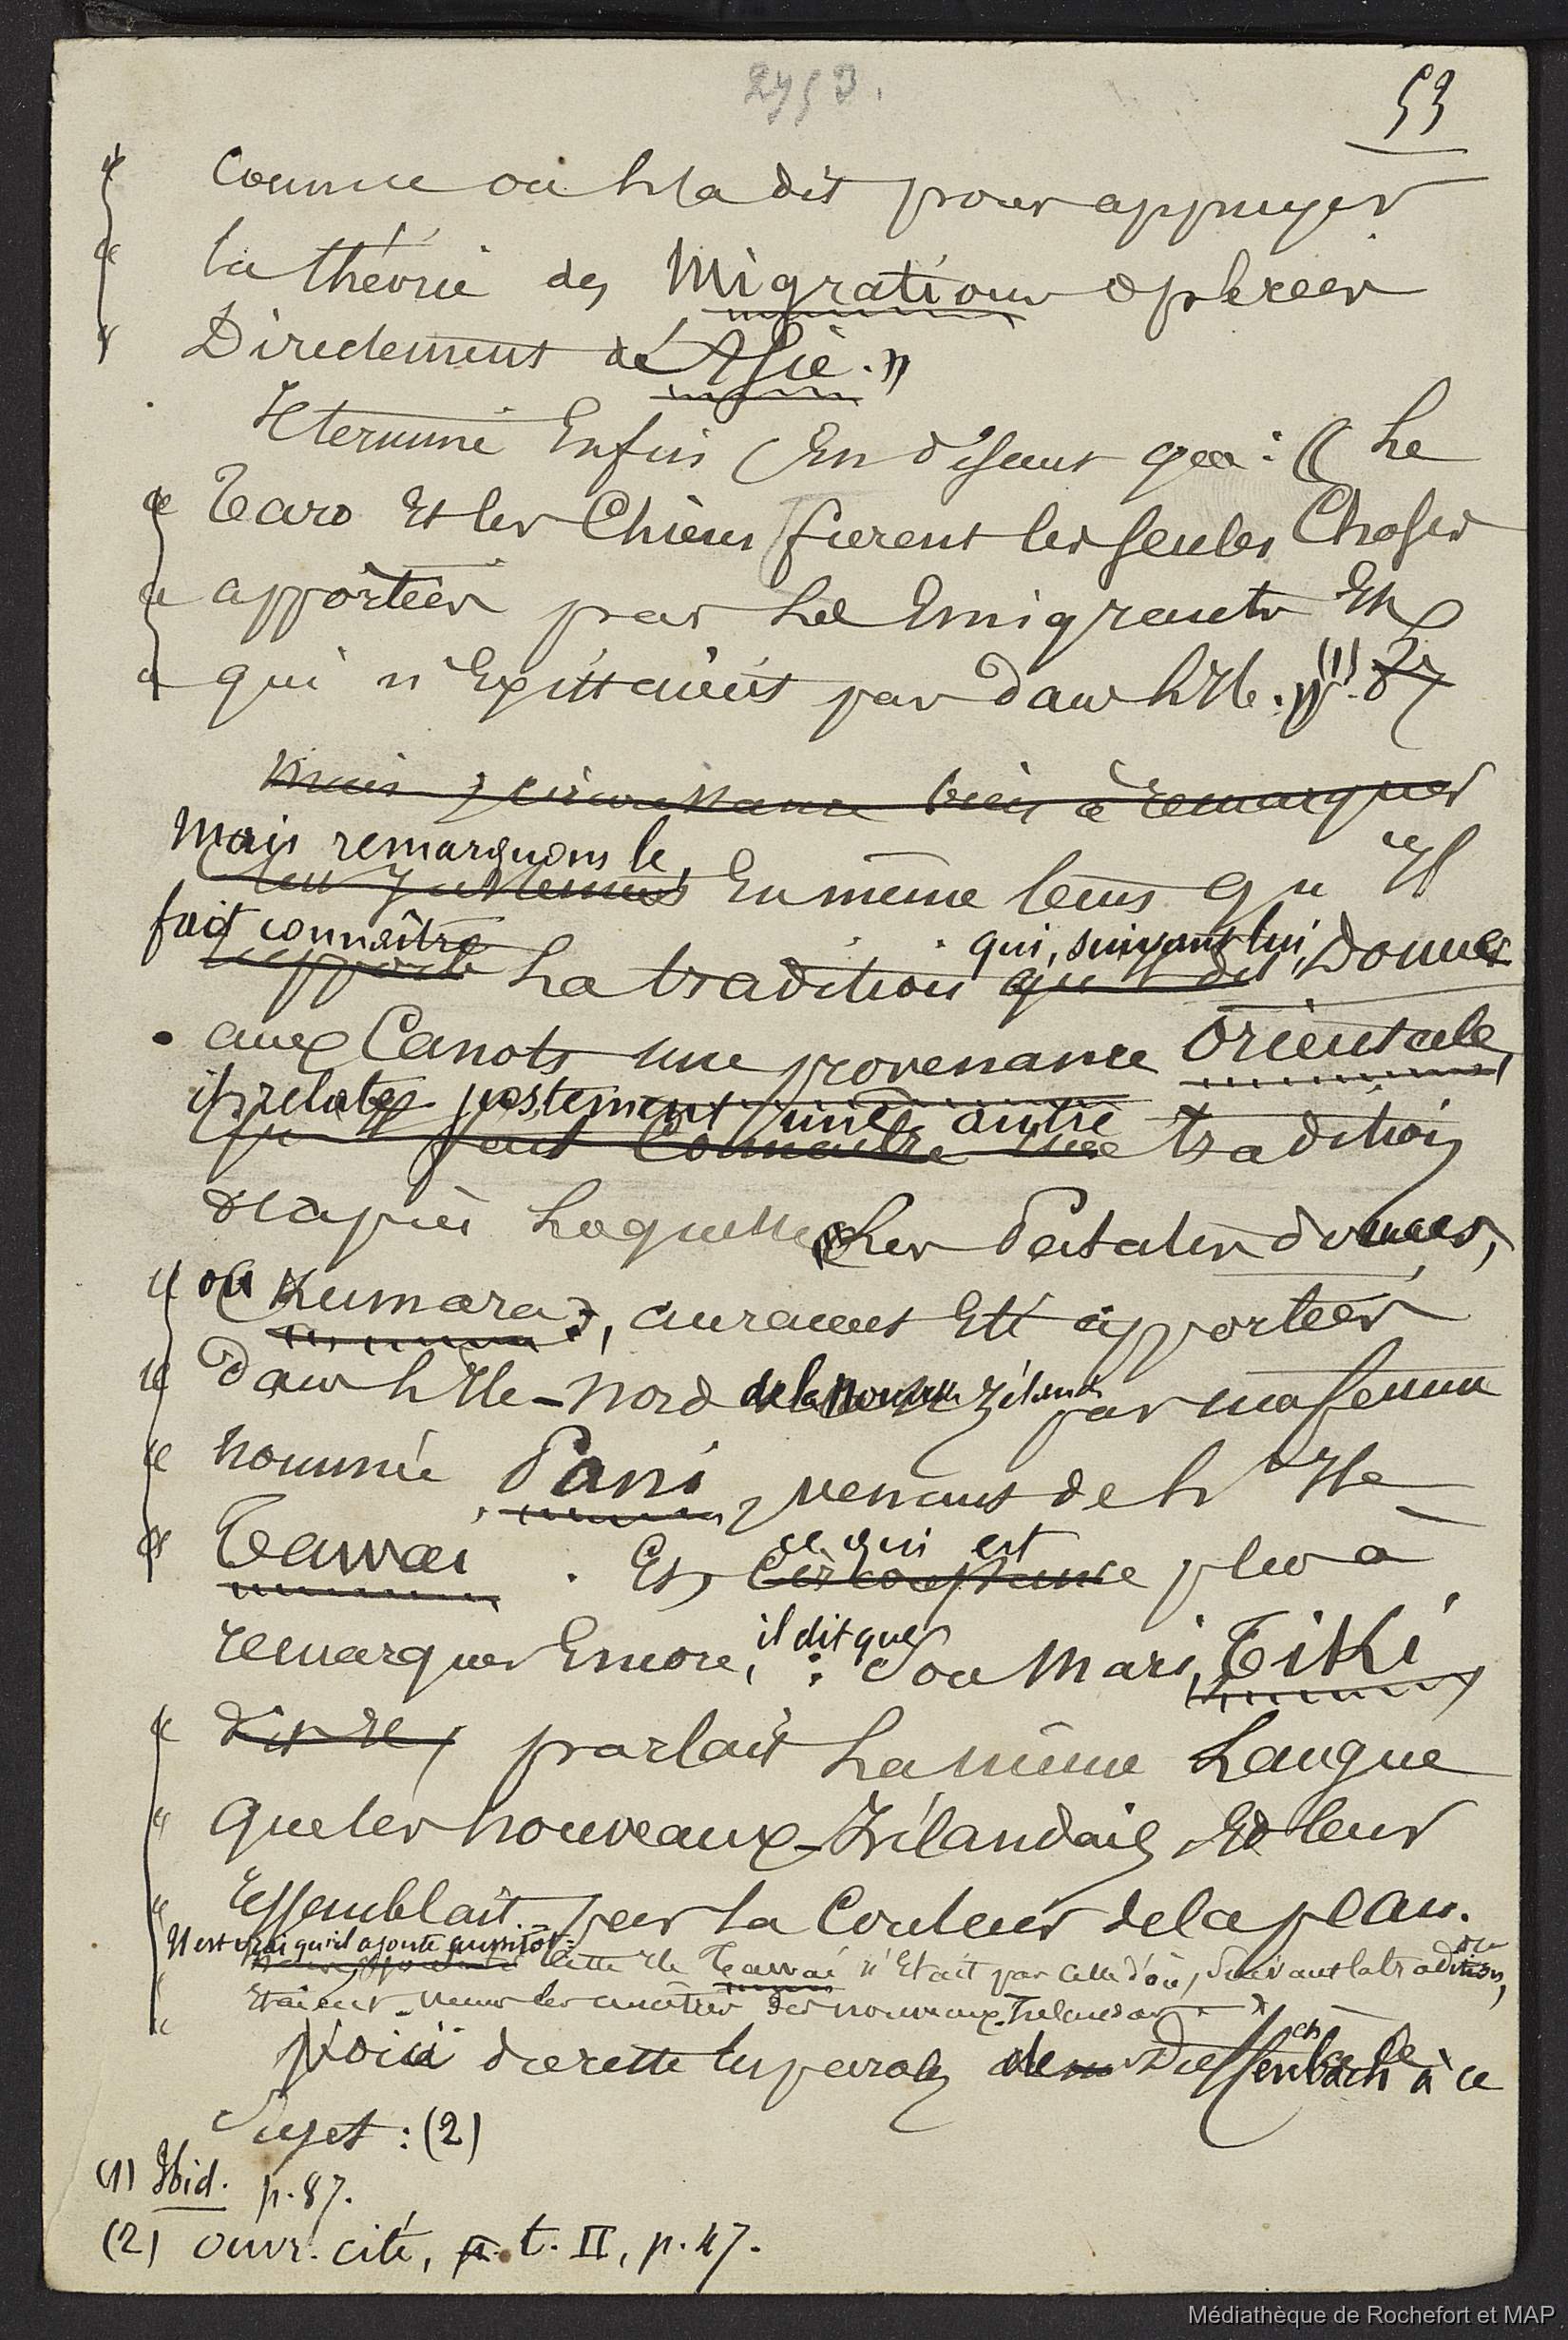 2953.
53
« comme on l'a dit pour appuyer
« la théorie des Migrations opérées
« Directement d'Asie. »
Il termine Enfin En disant que : « Le
« Taro Et les Chiens furent les seules Choses
« apportées par les Emigrants Et
« qui n'Existaient pas dans l'Ile. » (1). 87
Mais, circonstance bien à remarquer
Mais remarquons le,
En même tems qu'Il
fait connaître qui, suivant lui,
rapporte La tradition qui dit, Donne
aux Canots une provenance Orientale,
il relate justement une autre
fait Connaitre une tradition
d'après Laquelle Les Patates douces,
« ou Kumara, auraient Eté apportées
« dans l'Ile-Nord de la Nouvelle Zélande par une femme
« nommée Pani, venant de l'Ile
« Tawai. Et, ce qui est
Circonstance plus à
remarquer Encore, il dit que : Son Mari, Tiki,
« dit-Il, parlait La même Langue
« que les nouveaux-Zélandais, Et leur
« ressemblait par la Couleur de la peau.
Il est vrai qu'il ajoute aussitôt :
« Cette Ile Tawai n'Etait pas Celle d'où, Suivant la tradition,
« Etaient venus les ancêtres des nouveaux-Zelandais. »
Voici du reste les paroles de Dieffenbach à ce
Sujet : (2)
(1) Ibid. p. 87.
(2) ouvr. cité, t. II, p. 47.
Médiathèque de Rochefort et MAP